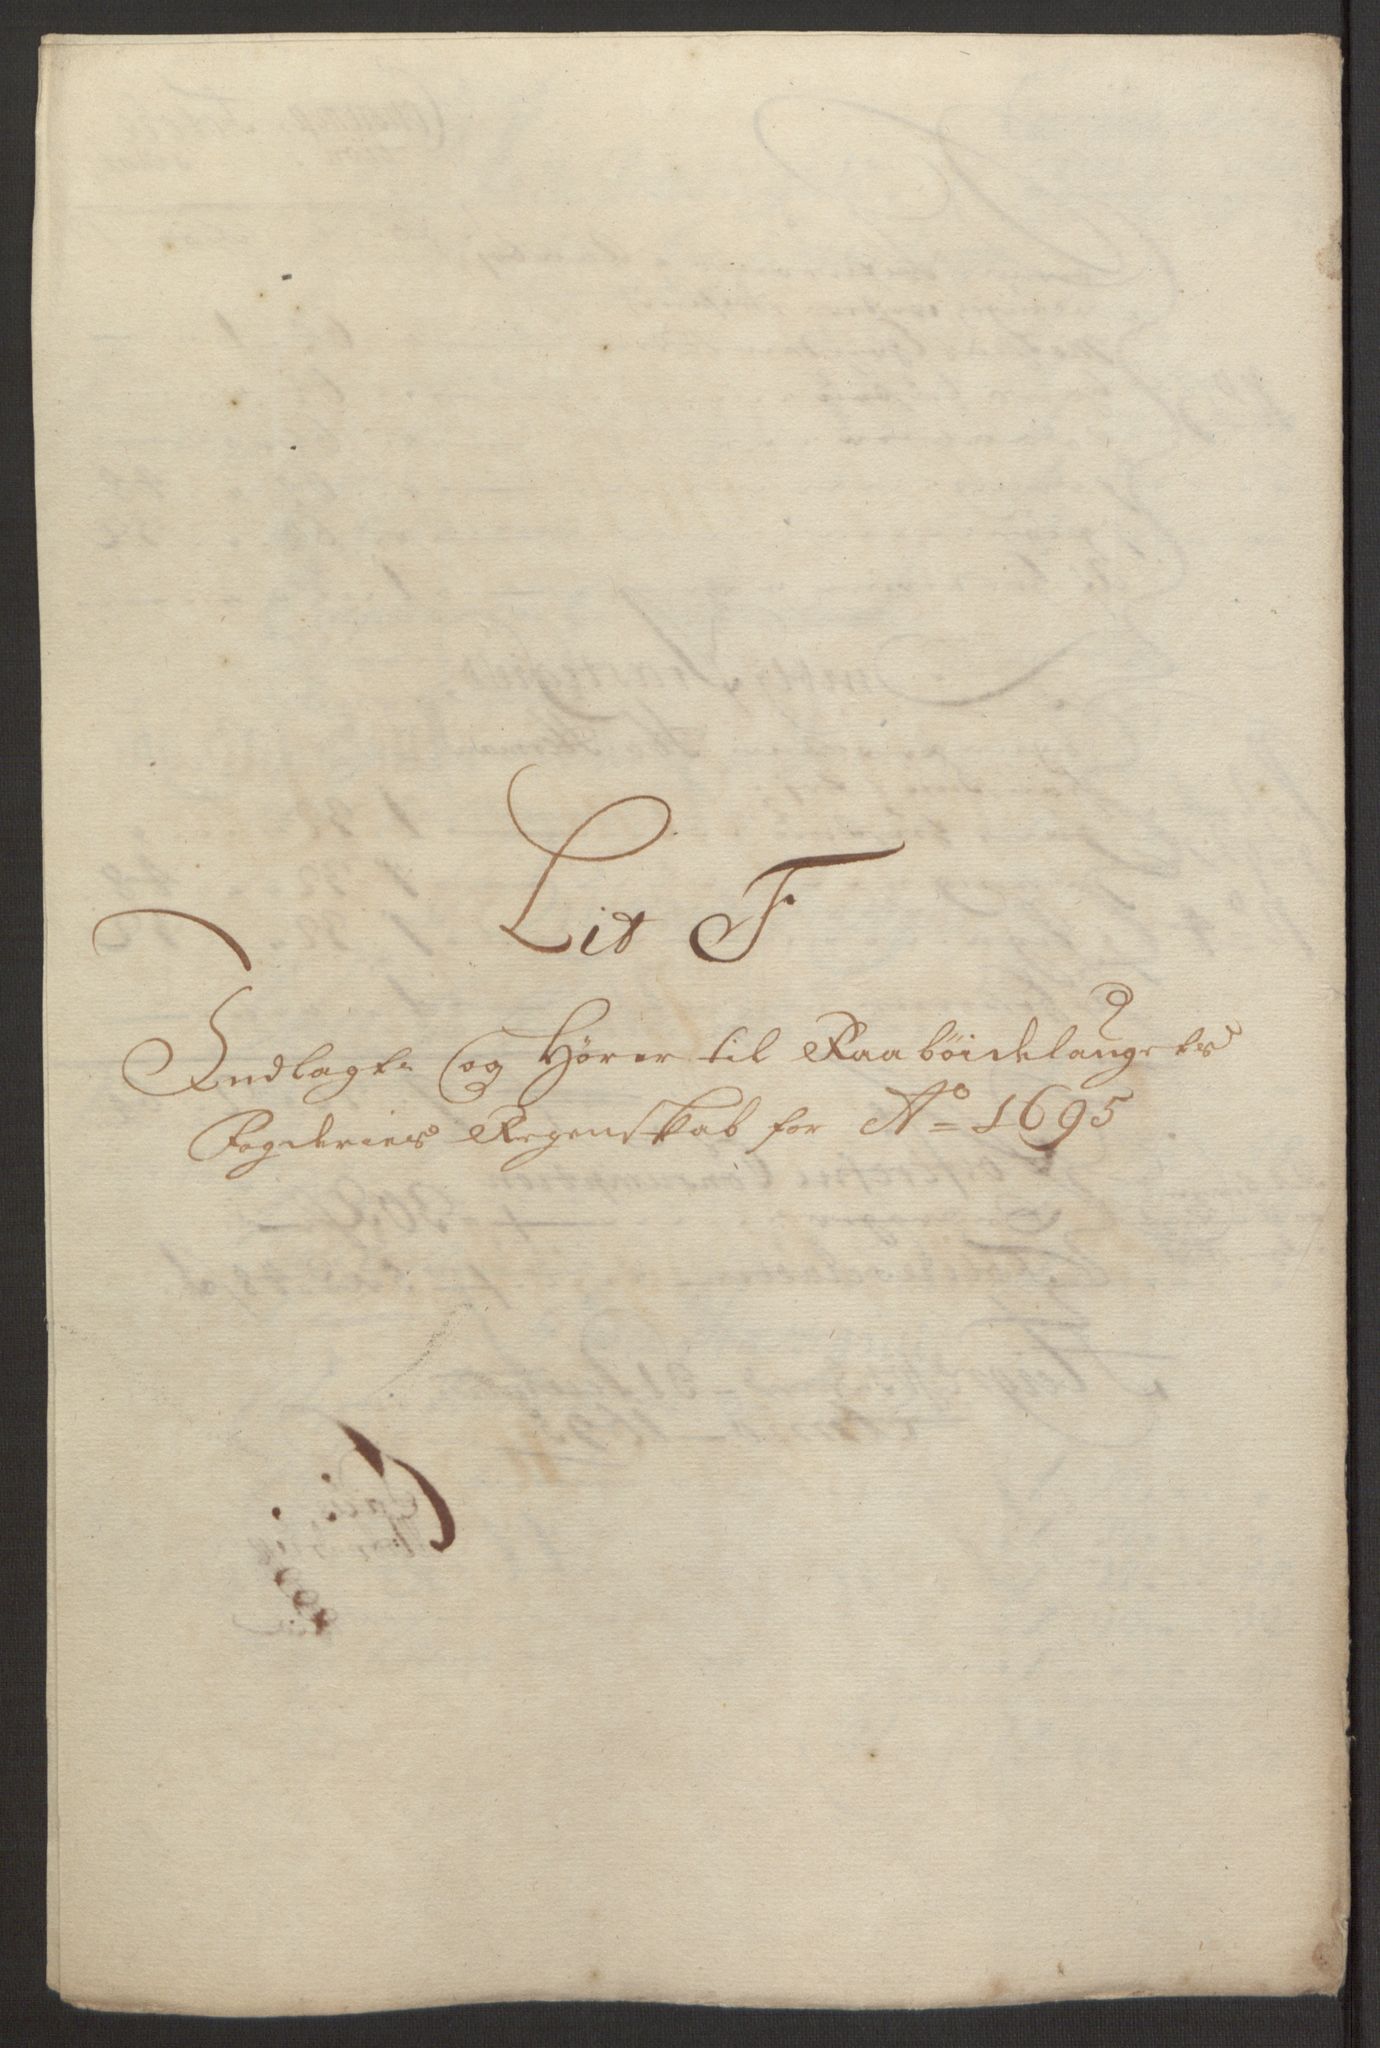 Lit F
Indlagt og Hører til Raabøidelaugets
Fogderies Regenskab for Ao 1695